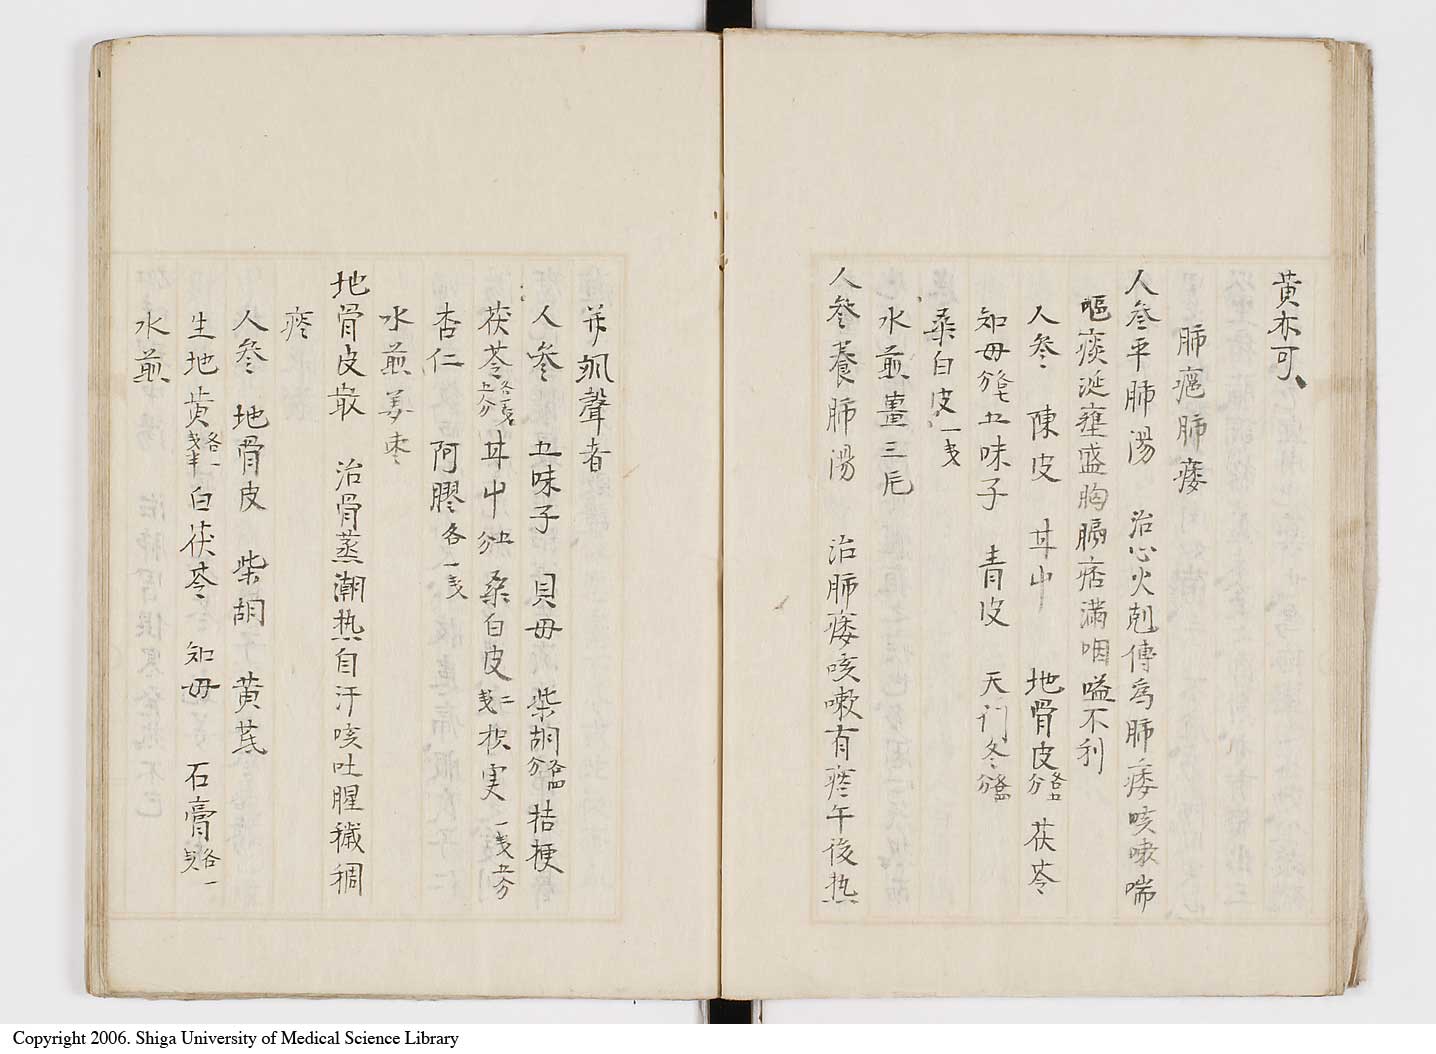 黄亦可、
肺癰肺痿
人參平肺湯　治心火剋傳為肺痿咳嗽喘
嘔痰涎壅盛胸膈痞満咽嗌不利
人參　陳皮　甘艸　地骨皮各五分　茯苓
知母七分　五味子　青皮　天门冬各四分
桑白皮一戋
水煎薑三片
人參養肺湯　治肺痿咳嗽有痰午後热
并飒聲者
人參　五味子　貝母　柴胡各四分　桔梗
茯苓各一戋五分　甘艸五分　桑白皮二戋　枳実一戋五分
杏仁　阿膠各一戋
水煎姜枣
地骨皮散　治骨蒸潮热自汗咳吐腥穢稠
痰
人參　地骨皮　柴胡　黄芪
生地黄各一戋半　白茯苓　知母　石膏各一戋
水煎
Copyright 2006. Shiga University of Medical Science Library